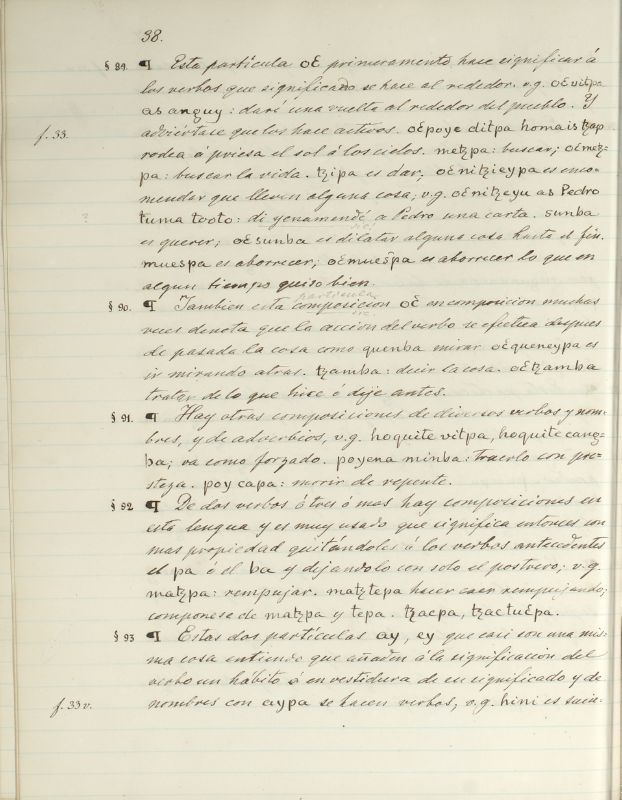 38.
§ 89. ¶ Esta partícula oɛ primeramente hace significar á
los verbos que significado se hace al rededor. v.g. oɛvitpa
as anguy: daré una vuelta al rededor del pueblo. Y
f. 33. adviértase que los hace activos. oɛpoye ditpa homais tʒap
rodea á priesa el sol á los cielos. metʒpa: buscar; oɛmetʒ-
pa: buscar la vida. tʒipa es dar, oɛnitʒieypa es enco-
mendar que lleven alguna cosa; v.g. oɛnitʒeyu as Pedro
? tuma toto: di y encomendé a Pedro una carta. sunba
es querer; oɛsunba es dilatar alguna cosa hasta el fin.
muespa es aborrecer; oɛmuespa es aborrecer lo que en
algun tiempo quiso bien.
particula
§ 90. ¶ Tambien esta composicion oɛ en composicion muchas
sic.
veces denota que la accion del verbo se efectua despues
de pasada la cosa como quenba mirar oɛqueneypa es
ir mirando atras. tʒamba: decir la cosa. oɛtʒamba
tratar de lo que hice ó dije antes.
§ 91. ¶ Hay otras composiciones de diversos verbos y nom-
bres, y de adverbios, v.g. hoquite vitpa, hoquite cang-
ba; va como forzado. poyena minba: traerlo con pre-
steza. poy capa: morir de repente.
§ 92 ¶ De dos verbos ó tres ó mas hay composiciones en
esta lengua y es muy usado que significa entonces con
mas propiedad quitándoles á los verbos antecedentes
el pa ó el ba y dejandolo con solo el postrero; v.g.
matʒpa: rempujar. matʒtepa hacer caer rempujando;
componese de matʒpa y tepa. tʒacpa, tʒactuɛpa.
§ 93 ¶ Estas dos partículas ay, ey que casi son una mis-
ma cosa entiendo que añaden á la significacion del
verbo un hábito ó en vestidura de su significado y de
f. 33 v. nombres con aypa se hacen verbos, v.g. hini es suia-